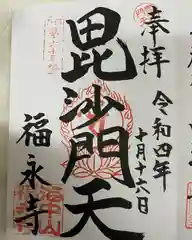 奉拝
令和四年
十月十六日
毘沙門天
福永寺